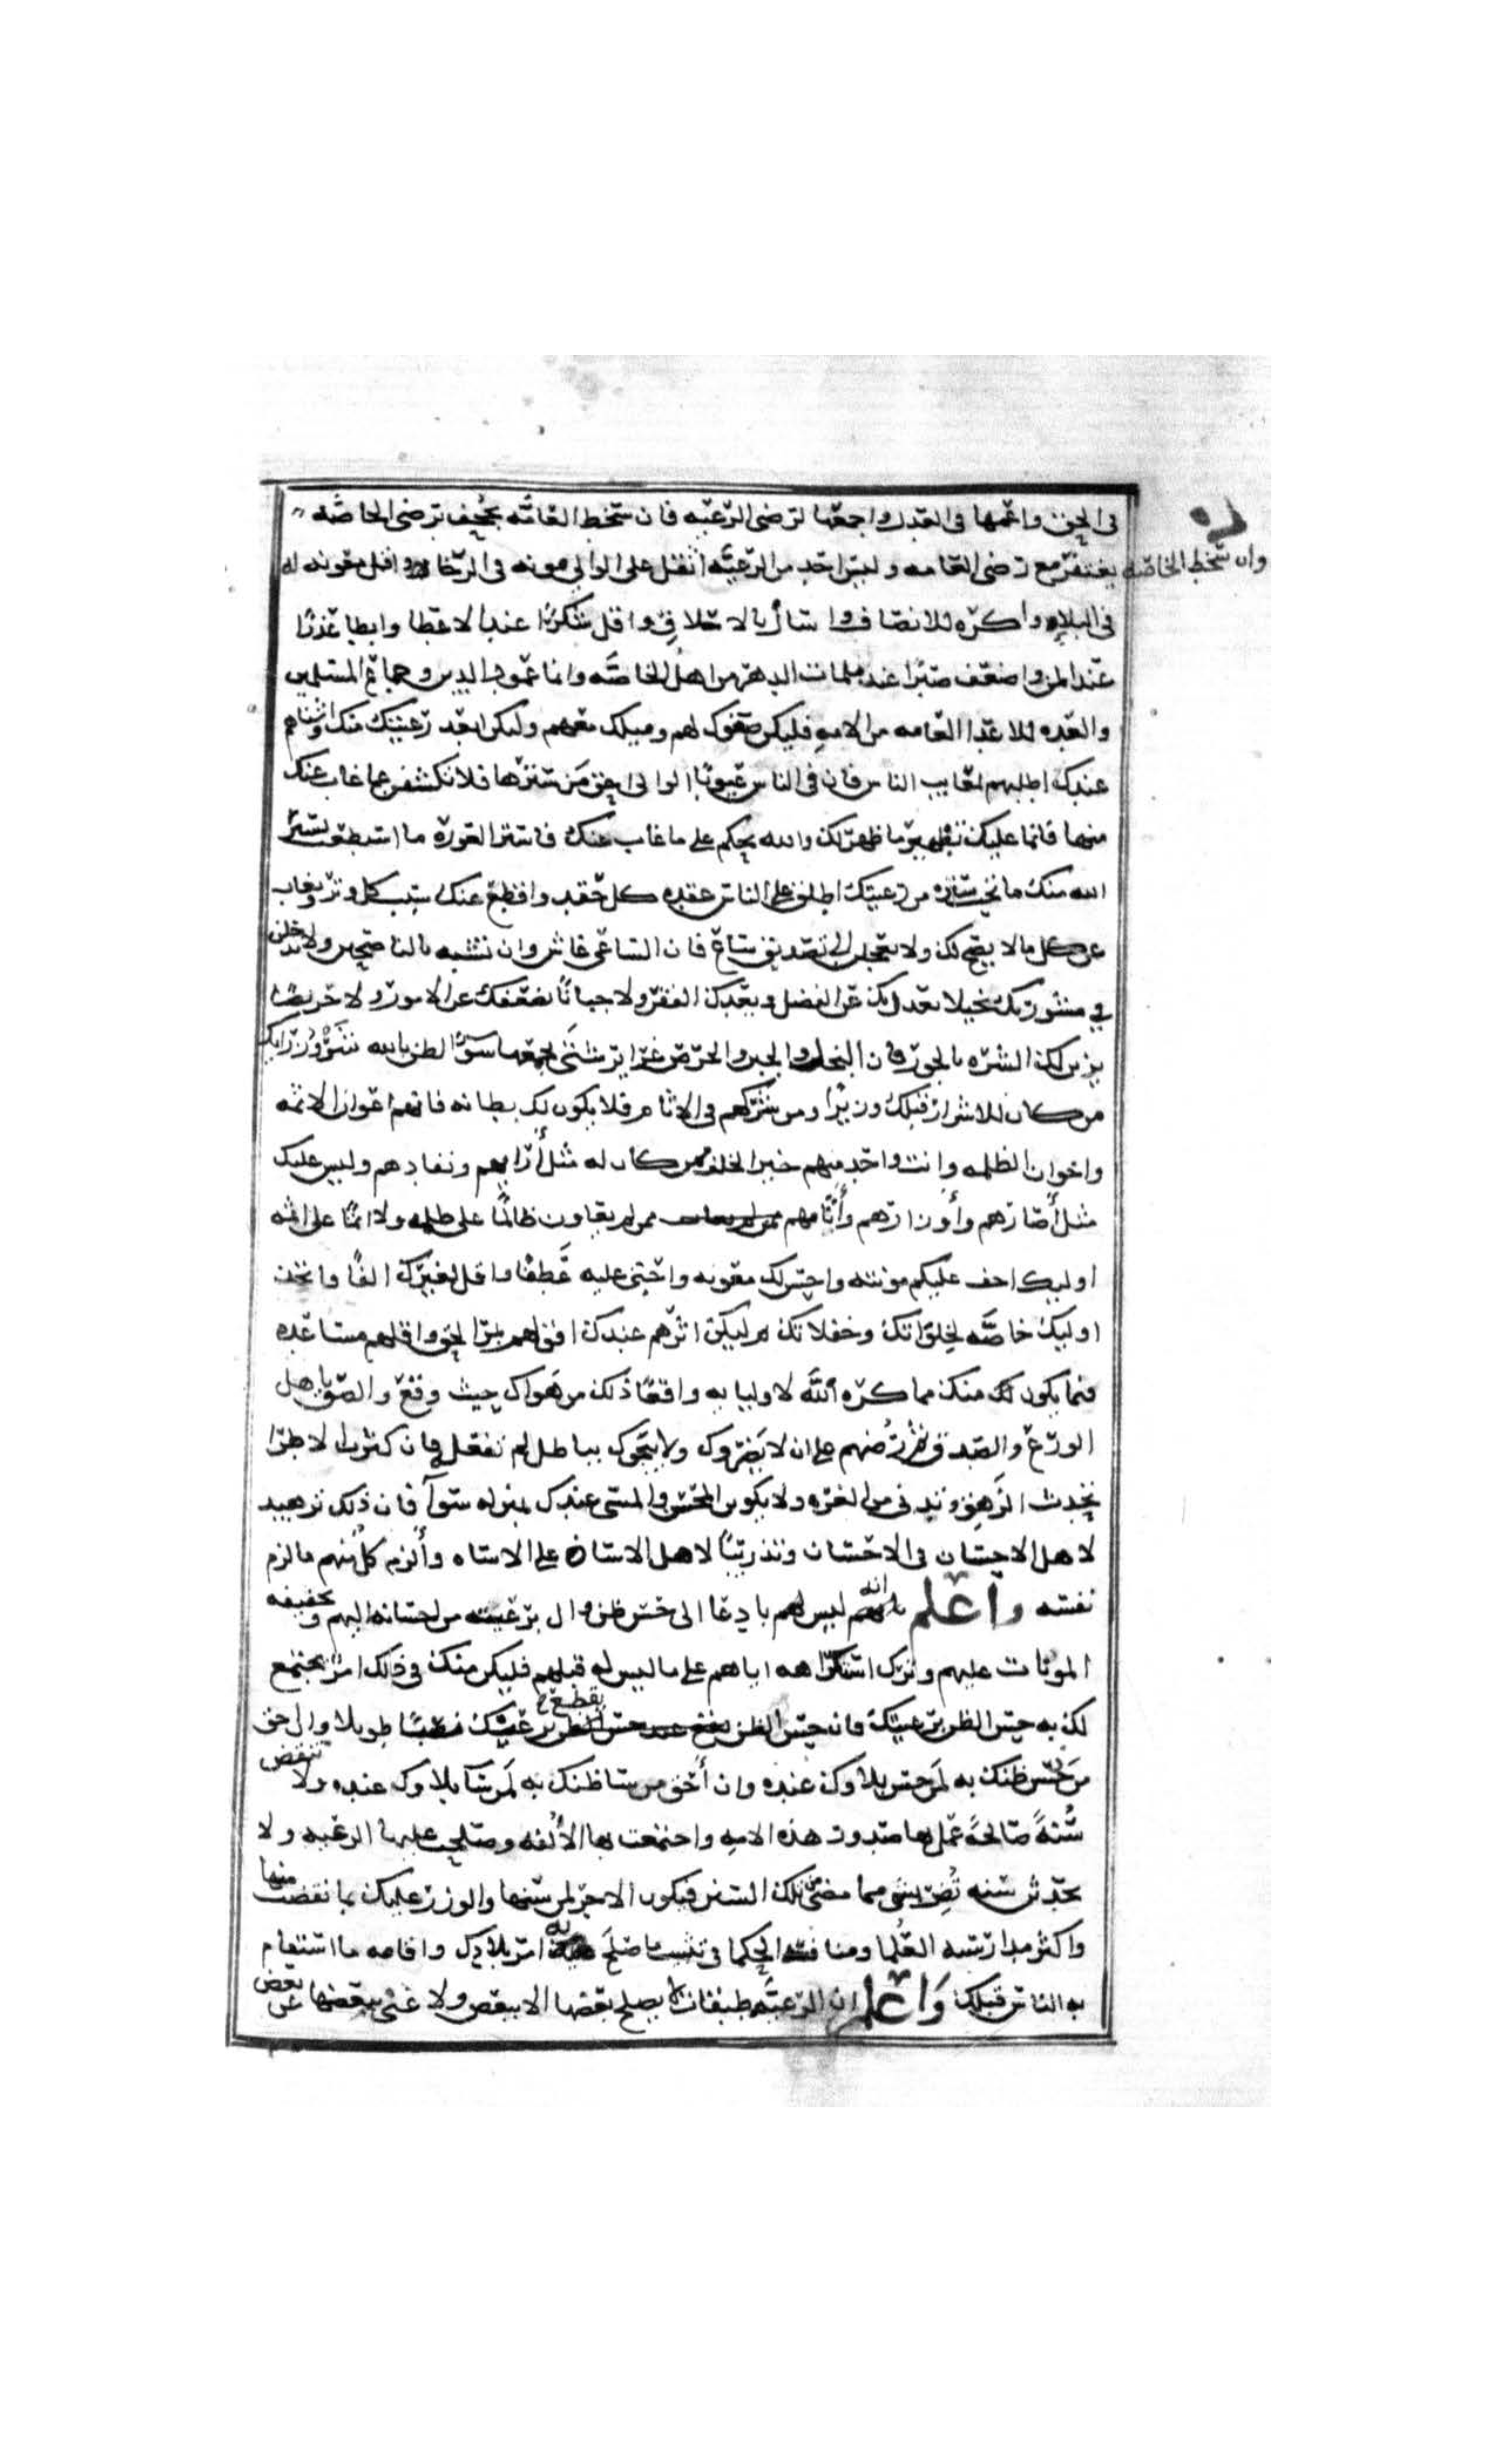 في الحق واعمها في العدل واجمعها لرضى الرعيه فان سخط العامه يجحف برضى الخاصه
وان سخط الخاصه يغتفر مع رضى العامه وليس احد من الرعيه اثقل على الوالي مونه في الرخا واقل معونه له
في البلاء واكره للانصاف واسال بالالحاف واقل شكرا عند الاعطا وابطا عذرا
عند المنع واضعف صبرا عند ملمات الدهر من اهل الخاصه وانما عمود الدين وجماع المسلمين
والعده للاعدا العامه من الامه فليكن صغوك لهم وميلك معهم وليكن ابعد رعيتك منك واشناهم
عندك اطلبهم لمعايب الناس فان في الناس عيوبا الوالي احق من سترها فلا تكشفن عما غاب عنك
منها فانما عليك تطهير ما ظهر لك والله يحكم على ما غاب عنك فاستر العوره ما استطعت يستر
الله منك ما تحب ستره من رعيتك اطلق على الناس عقده كل حقد واقطع عنك سبب كل وتر وتغاب
عن كل ما لا يضح لك ولا تعجلن الى تصديق ساع فان الساعي غاش وان تشبه بالناصحين ولا تدخلن
في مشورتك بخيلا يعدل بك عن الفضل ويعدك الفقر ولا جبانا يضعفك عن الامور ولا حريصا
يزين لك الشره بالجور فان البخل والجبن والحرص غرايز شتى يجمعها سو الظن بالله شر وزرايك
من كان للاشرار قبلك وزيرا ومن شركهم في الاثام فلا يكون لك بطانه فانهم اعوان الاثمه
واخوان الظلمه وانت واجد منهم خير الخلف ممن كان له مثل آرايهم ونفاذهم وليس عليك
مثل آصارهم وأوزارهم وآثامهم ممن لم يعاون ظالما على ظلمه ولا اثما على اثمه
اوليك اخف عليكم مونته واحسن لك معونه واحنى عليه عطفا واقل لغيرك الفا فاتخذ
اوليك خاصه لخلواتك وحفلاتك ثم ليكن اثرهم عندك اقولهم بمر الحق واقلهم مساعده
فيما يكون لك منك مما كره الله لاوليايه واقعا ذلك من هواك حيث وقع والصق باهل
الورع والصدق ثم رضهم على ان لا يطروك ولا يبجحوك بباطل لم تفعله فان كثره الاطرا
تحدث الزهو وتدني من الغره ولا يكون المحسن والمسي عندك بمنزله سوآ فان ذلك تزهيد
لاهل الاحسان في الاحسان وتدريبا لاهل الاساه على الاساه وألزم كلا منهم ما لزم
نفسه واعلم انه ليس شي بادعا الى حسن ظن وال برعيته من احسانه اليهم وتخفيفه
المونات عليهم وترك استكراهه اياهم على ما ليس له قبلهم فليكن منك في ذلك امر يجتمع
لك به حسن الظن برعيتك فان حسن الظن يقطع عنك نصبا طويلا وان احق
من حسن ظنك به لمن حسن بلاوك عنده وان أحق من سا ظنك به لمن سآ بلاوك عنده ولا تنقض
سنة صالحة عمل بها صدور هذه الامه واجتمعت بها الألفه وصلحت عليها الرعيه ولا
تحدثن سنه تضر بشي مما مضى من تلك السنن فيكون الاجر لمن سنها والوزر عليك بما نقضت منها
واكثر مدارسه العلما ومنافثه الحكما في تثبيت ما صلح عليه امر بلادك واقامه ما استقام
به الناس قبلك وَاعلم ان الرعيه طبقات لا يصلح بعضها الا ببعض ولا غنى ببعضها عن بعض